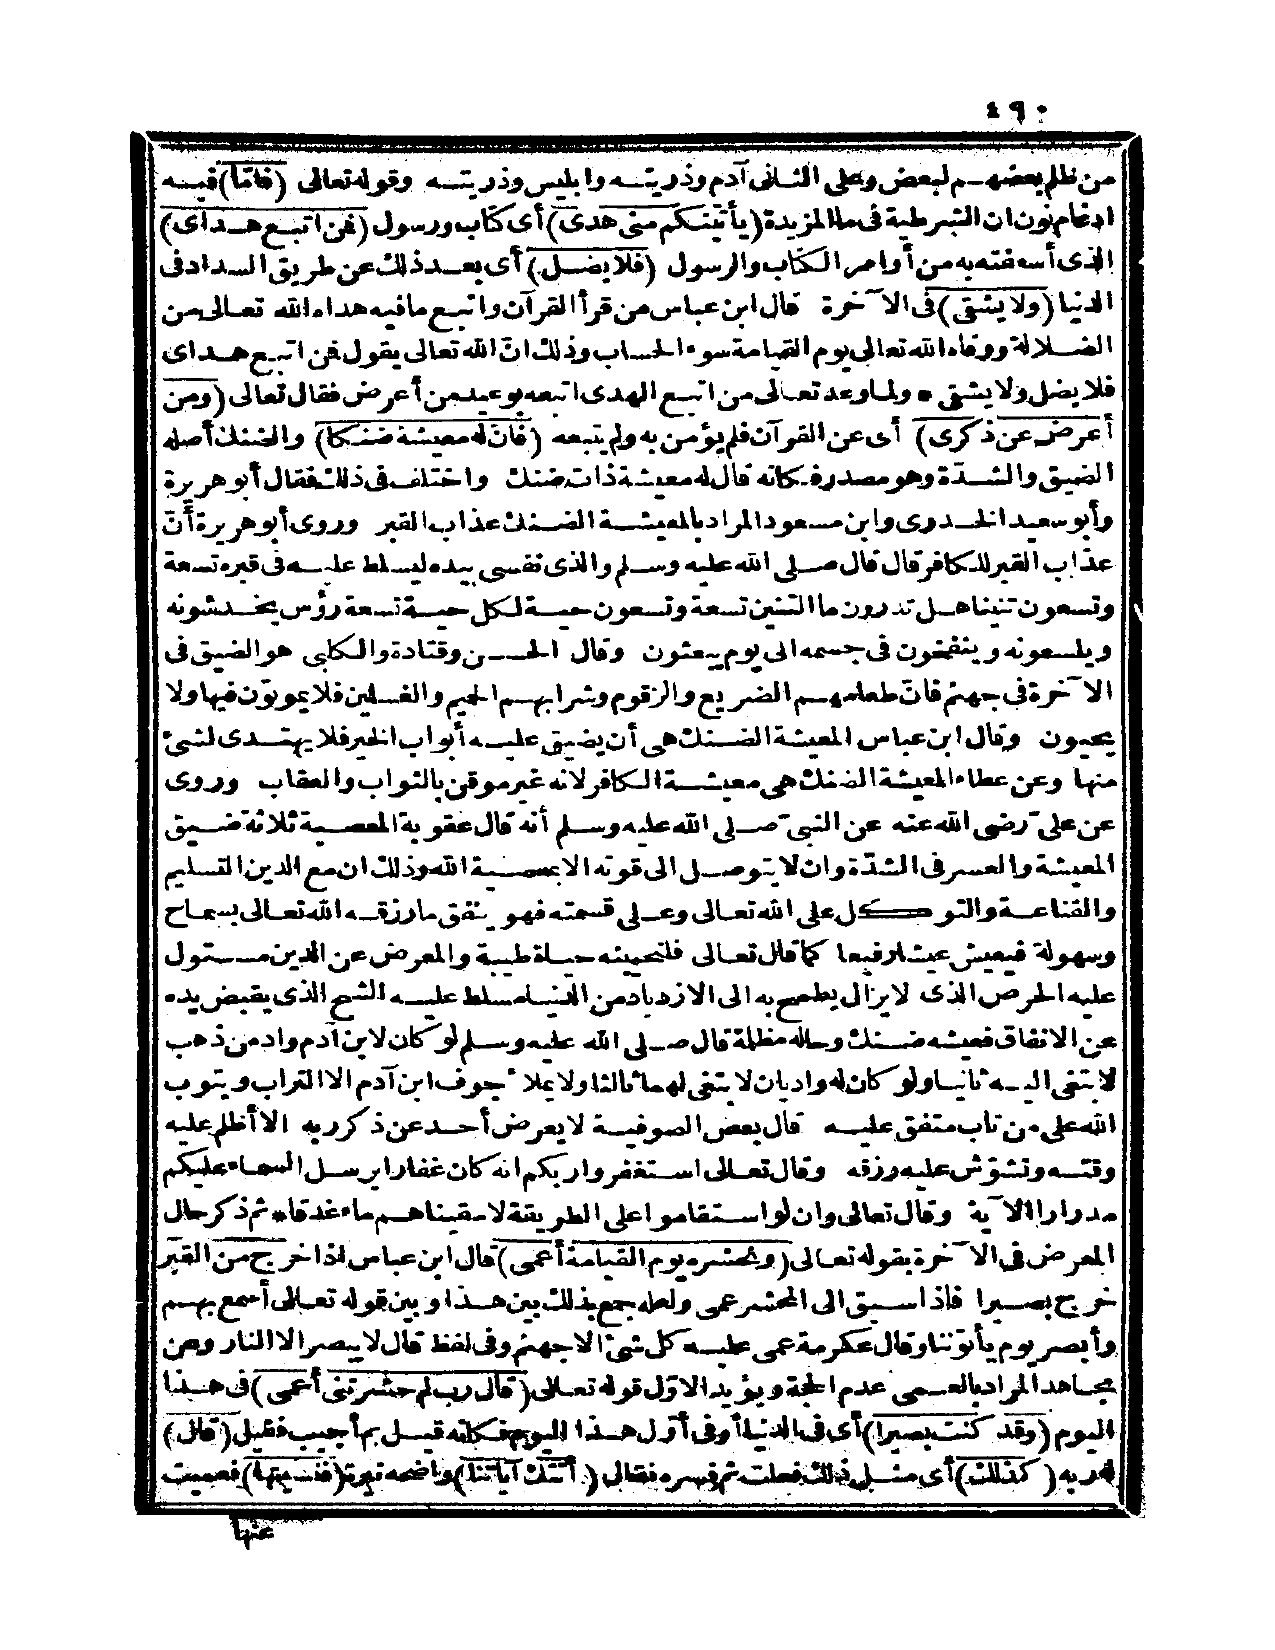 ٤٩٠
من ظلم بعضهم لبعض وعلى الثانى آدم وذريته وابليس وذريته وقوله تعالى (فامّا) فيه
ادغام نون ان الشرطية فى ما المزيدة (يأتينكم منى هدى) أى كتاب ورسول (فمن اتبع هداى)
الذى أسعفته به من أوامر الكتاب والرسول (فلا يضل) أى بعد ذلك عن طريق السداد فى
الدنيا (ولا يشقى) فى الآخرة قال ابن عباس من قرأ القرآن واتبع ما فيه هداه الله تعالى من
الضلالة ووقاه الله تعالى يوم القيامة سوء الحساب وذلك انّ الله تعالى يقول فمن اتبع هداى
فلا يضل ولا يشقى * ولما وعد تعالى من اتبع الهدى اتبعه بوعيد من أعرض فقال تعالى (ومن
أعرض عن ذكرى) أى عن القرآن فلم يؤمن به ولم يتبعه (فانّ له معيشة ضنكا) والضنك أصله
الضيق والشدّة وهو مصدر فكانه قال له معيشة ذات ضنك واختلف فى ذلك فقال أبو هريرة
وأبو سعيد الخدرى وابن مسعود المراد بالمعيشة الضنك عذاب القبر وروى أبو هريرة أنّ
عذاب القبر للكافر قال قال صلى الله عليه وسلم والذى نفسى بيده ليسلط عليه فى قبره تسعة
وتسعون تنينا هل تدرون ما التنين تسعة وتسعون حية لكل حية تسعة رؤس يخدشونه
ويلسعونه وينفخون فى جسمه الى يوم يبعثون وقال الحسن وقتادة والكلبى هو الضيق فى
الآخرة فى جهنم فانّ طعامهم الضريع والزقوم وشرابهم الحميم والغسلين فلا يموتون فيها ولا
يحيون وقال ابن عباس المعيشة الضنك هى أن يضيق عليه أبواب الخير فلا يهتدى لشئ
منها وعن عطاء المعيشة الضنك هى معيشة الكافر لانه غير موقن بالثواب والعقاب وروى
عن علىّ رضى الله عنه عن النبىّ صلى الله عليه وسلم أنه قال عقوبة المعصية ثلاثة ضيق
المعيشة والعسر فى الشدّة وان لا يتوصل الى قوته الا بمعصية الله وذلك ان مع الدين التسليم
والقناعة والتوكل على الله تعالى وعلى قسمته فهو ينفق ما رزقه الله تعالى بسماح
وسهولة فيعيش عيشا رفيعا كما قال تعالى فلنحيينه حياة طيبة والمعرض عن الدين مستول
عليه الحرص الذى لا يزال يطمح به الى الازدياد من الدنيا مسلط عليه الشح الذى يقبض يده
عن الانفاق فعيشه ضنك وحاله مظلمة قال صلى الله عليه وسلم لو كان لابن آدم واد من ذهب
لابتغى اليه ثانيا ولو كان له واديان لابتغى لهما ثالثا ولا يملأ جوف ابن آدم الا التراب ويتوب
الله على من تاب متفق عليه قال بعض الصوفية لا يعرض أحد عن ذكر ربه الا أظلم عليه
وقته وتشوّش عليه رزقه وقال تعالى استغفروا ربكم انه كان غفارا يرسل السماء عليكم
مدرارا الآية وقال تعالى وان لو استقاموا على الطريقة لاسقيناهم ماء غدقا * ثم ذكر حال
المعرض فى الآخرة بقوله تعالى (ونحشره يوم القيامة أعمى) قال ابن عباس اذا خرج من القبر
خرج بصيرا فاذا سيق الى المحشر عمى ولعله جمع بذلك بين هذا وبين قوله تعالى أسمع بهم
وأبصر يوم يأتوننا وقال عكرمة عمى عليه كل شئ الا جهنم وفى لفظ قال لا يبصر الا النار وعن
مجاهد المراد بالعمى عدم الحجة ويؤيد الاوّل قوله تعالى (قال رب لم حشرتنى أعمى) فى هذا
اليوم (وقد كنت بصيرا) أى فى الدنيا أو فى أوّل هذا اليوم فكانه قيل بم أجيب فقيل (قال)
له ربه (كذلك) أى مثل ذلك فعلت ثم فسره فقال (أتتك آياتنا) واضحة نيرة (فنسيتها) فعميت
عنها